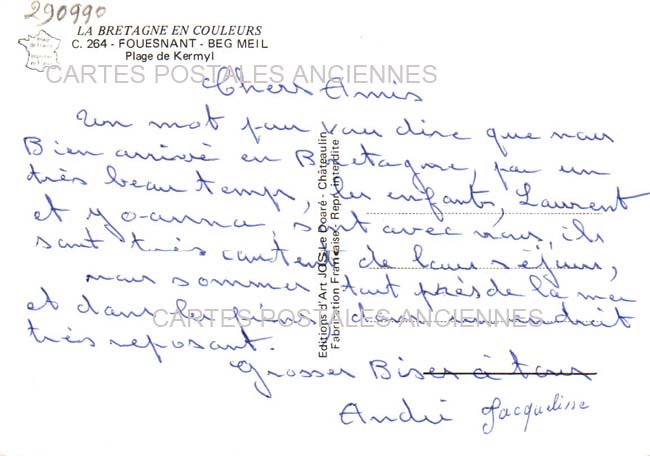 290990
LA BRETAGNE EN COULEURS
C. 264 - FOUESNANT - BEG MEIL
Plage de Kermyl
CARTES POSTALES ANCIENNES
Chers Amis
Un mot pour vous dire que nous
Bien arrivé en Bretagne, par un
très beau temps, les enfants, Laurent
et yo-anna, sont avec nous, ils
sont très content de leur séjour,
nous sommes tout près de la mer
et dans les pins, dans un endroit
très reposant.
CARTES POSTALES ANCIENNES
Grosses Bises à tous
André Jacqueline
Editions d'Art JOS Le Doaré - Châteaulin
Fabrication Française - Repr. interdite